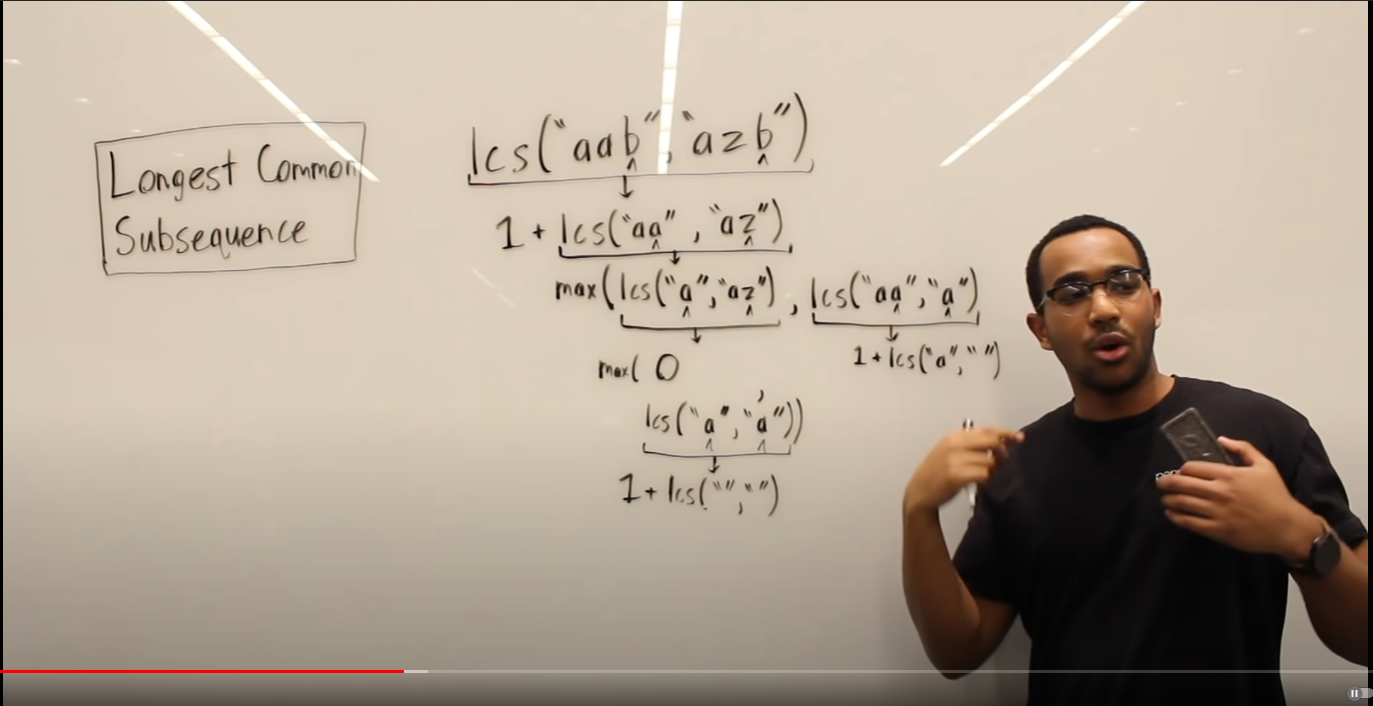 Longest Common
Subsequence
lcs("aab", "azb")
1 + lcs("aa", "az")
max(lcs("a","az"), lcs("aa","a")
max( 0
1+lcs("a","")
lcs("a","a"))
1+lcs("","")